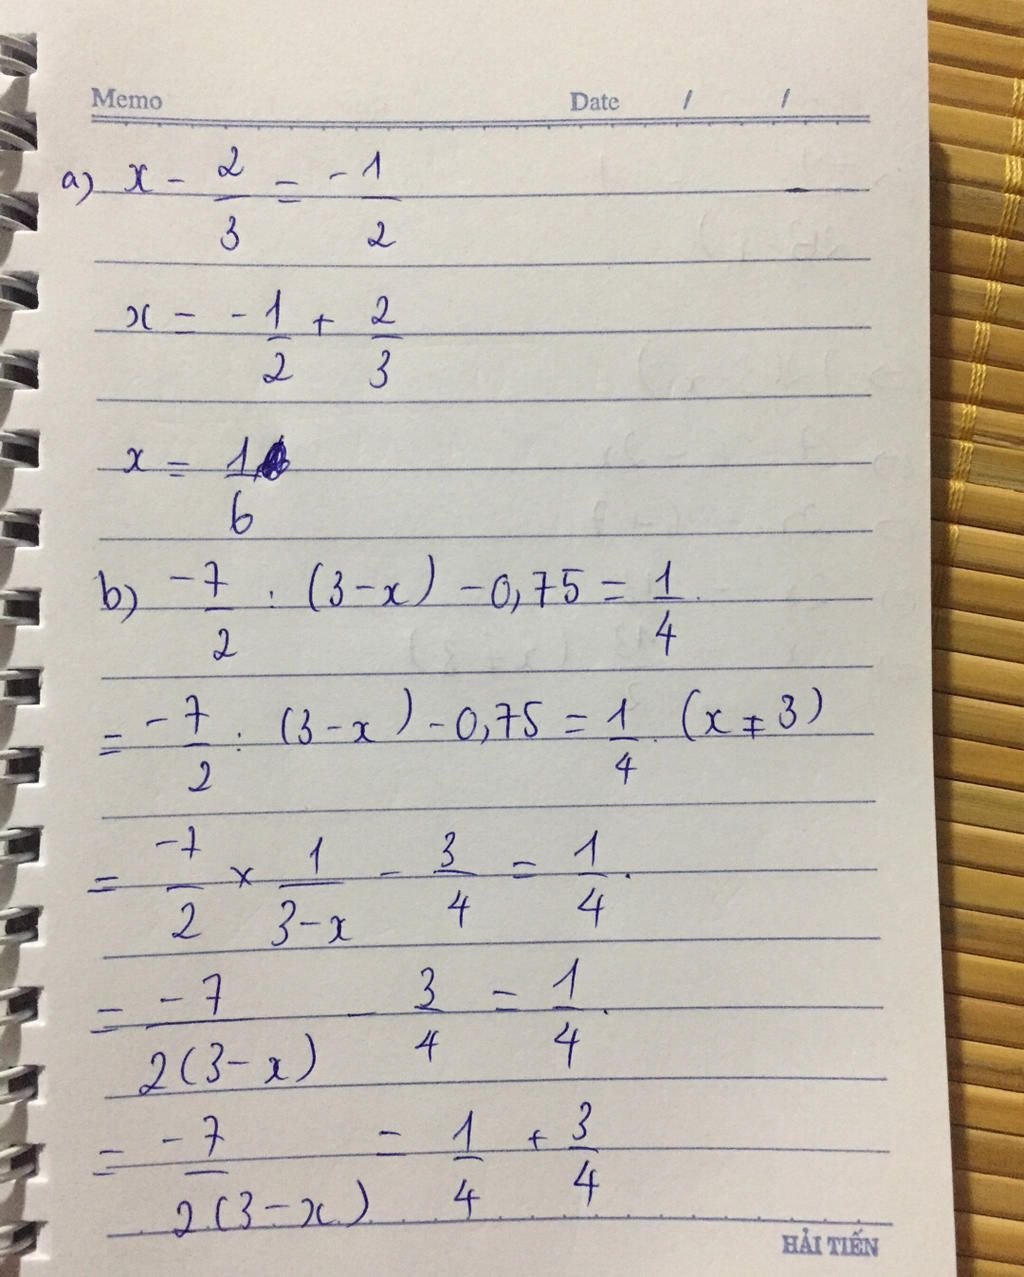 Memo Date / /
a) x - 2/3 = - 1/2
x = - 1/2 + 2/3
x = 1/6
b) -7/2 : (3-x) - 0,75 = 1/4.
= -7/2 : (3-x) - 0,75 = 1/4. (x ≠ 3)
= -7/2 × 1/3-x - 3/4 = 1/4.
= -7/2(3-x) - 3/4 = 1/4.
= -7/2(3-x) = 1/4 + 3/4
HẢI TIẾN